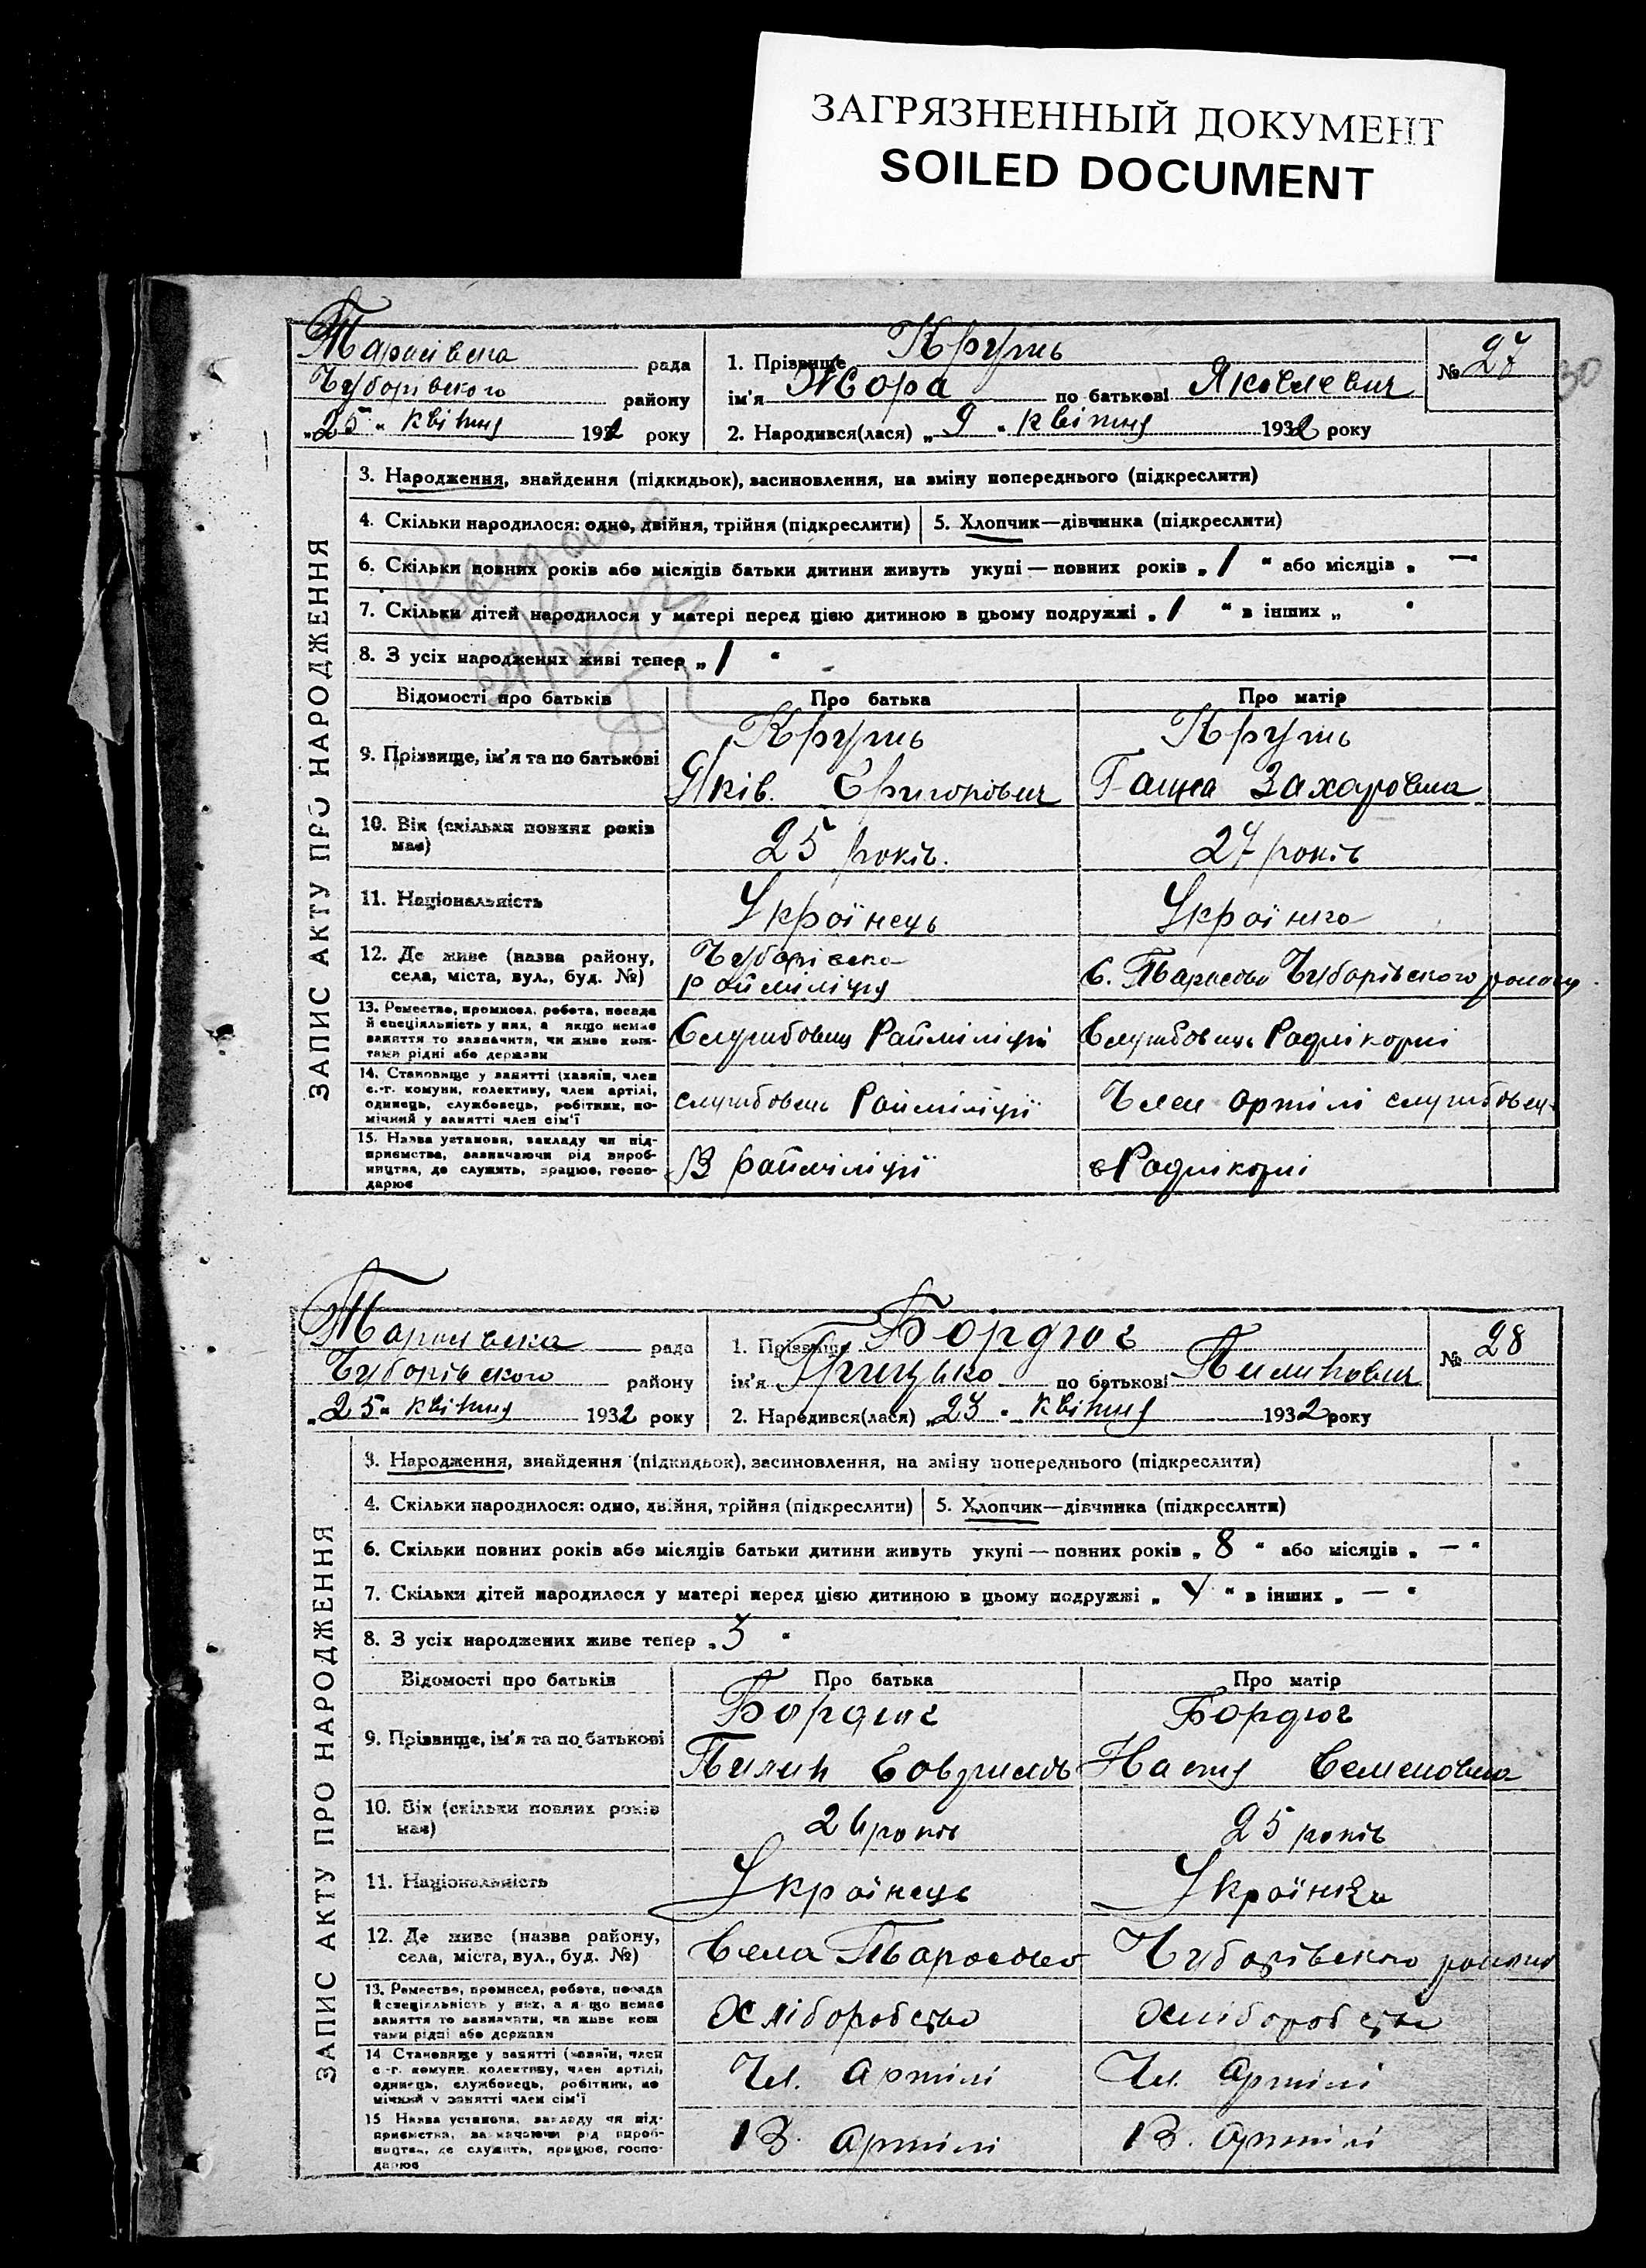 ЗАГРЯЗНЕННЫЙ ДОКУМЕНТ
SOILED DOCUMENT
Тарасівська рада
Чубарівського району
„25“ квітня 1932 року
1. Прізвище Круть
ім'я Жора по батькові Яковлевич
2. Народився(лася) „9“ квітня 1932 року
№ 27
30
ЗАПИС АКТУ ПРО НАРОДЖЕННЯ
3. Народження, знайдення (підкидьок), засиновлення, на зміну попереднього (підкреслити)
4. Скільки народилося: одно, двійня, трійня (підкреслити) 5. Хлопчик—дівчинка (підкреслити)
6. Скільки повних років або місяців батьки дитини живуть укупі — повних років „1“ або місяців „ —
7. Скільки дітей народилося у матері перед цією дитиною в цьому подружжі „1“ в інших „ “
8. З усіх народжених живі тепер „1“
Відомості про батьків Про батька Про матір
9. Прізвище, ім'я та по батькові
Круть Круть
Яків Григорович Ганна Захаровна
10. Вік (скільки повних років має)
25 років. 27 років
11. Національність
Українець Українка
12. Де живе (назва району, села, міста, вул., буд. №)
Чубарівська
Райміліція
С. Тарасовка Чубарівського району
13. Ремество, промисел, робота, посада
й спеціяльність у них, а якщо немає
заняття то зазначити, чи живе кош-
тами рідні або держави
Службовець Райміліції Службовець
14. Становище у занятті (хазяїн, член
с.-г. комуни, колективу, член артілі,
одинець, службовець, робітник, по-
мічний у занятті член сім'ї
службовець Райміліції Член артілі службовец
15. Назва установи, закладу чи під-
приємства, зазначаючи рід вироб-
ництва, де служить, працює, госпо-
дарює
В райміліції
Тарасівська рада
Чубарівського району
„25“ квітня 1932 року
1. Прізвище Бордюг
ім'я Грицько по батькові Пилипович
2. Народився(лася) „23“ квітня 1932 року
№ 28
ЗАПИС АКТУ ПРО НАРОДЖЕННЯ
3. Народження, знайдення (підкидьок), засиновлення, на зміну попереднього (підкреслити)
4. Скільки народилося: одно, двійня, трійня (підкреслити) 5. Хлопчик—дівчинка (підкреслити)
6. Скільки повних років або місяців батьки дитини живуть укупі — повних років „8“ або місяців „—“
7. Скільки дітей народилося у матері перед цією дитиною в цьому подружжі „ “ в інших „—“
8. З усіх народжених живе тепер „3“
Відомості про батьків Про батька Про матір
9. Прізвище, ім'я та по батькові
Бордюг Бордюг
Пилип Настя Семеновна
10. Вік (скільки повних років має)
26 років 25 років
11. Національність
Українець Українка
12. Де живе (назва району, села, міста, вул., буд. №)
Села Тарасовка Чубарівського району
13. Ремество, промисел, робота, посада
й спеціяльність у них, а якщо немає
заняття то зазначити, чи живе кош
тами рідні або держави
Хліборобство Хліборобство
14 Становище у занятті (хазяїн, член
с.-г. комуни колективу, член артілі,
одинець, службовець, робітник, по
мічний у занятті член сім'ї
Чл. Артілі Чл. Артілі
15 Назва установи, закладу чи під-
приємства, зазначаючи рід вироб-
ництва, де служить, працює, госпо-
дарює
В. Артілі В. Артілі